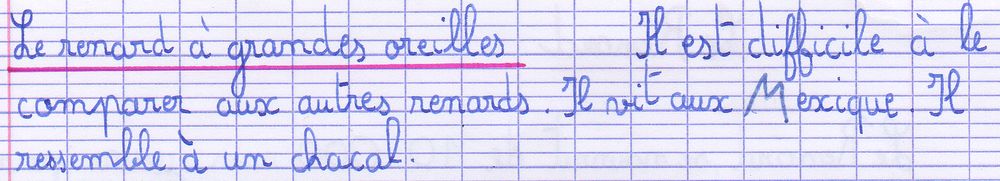 Le renard à grandes oreilles Il est difficile à le
comparer aux autres renards. Il vit aux Mexique. Il
ressemble à un chacal.